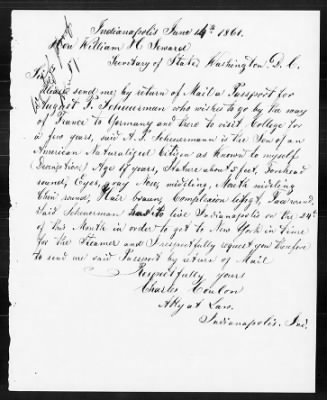 Indianapolis June 14th 1861.
Hon William H Seward
Secretary of State, Washington D. C.
Sir
Please send me by return of Mail a Passport for
August F. Scheuerman who wishes to go by the way
of France to Germany and there to visit College for
a few years, said A. F. Scheuermann is the Son of an
American Naturalized Citizen as known to myself
Description: Age 17 years, Stature about 5 feet, Forehead
round, Eyes, gray Nose, middling, Mouth middling
Chin round, Hair brown, Complexion light, Face round.
Said Scheuerman has to live Indianapolis on the 24th
of this Month in order to get to New York in time
for the Steamer and I respectfully request you therefore
to send me said Passport by return of Mail
Respectfully yours
Charles Coulon
Atty at Law.
Indianapolis, Ind.